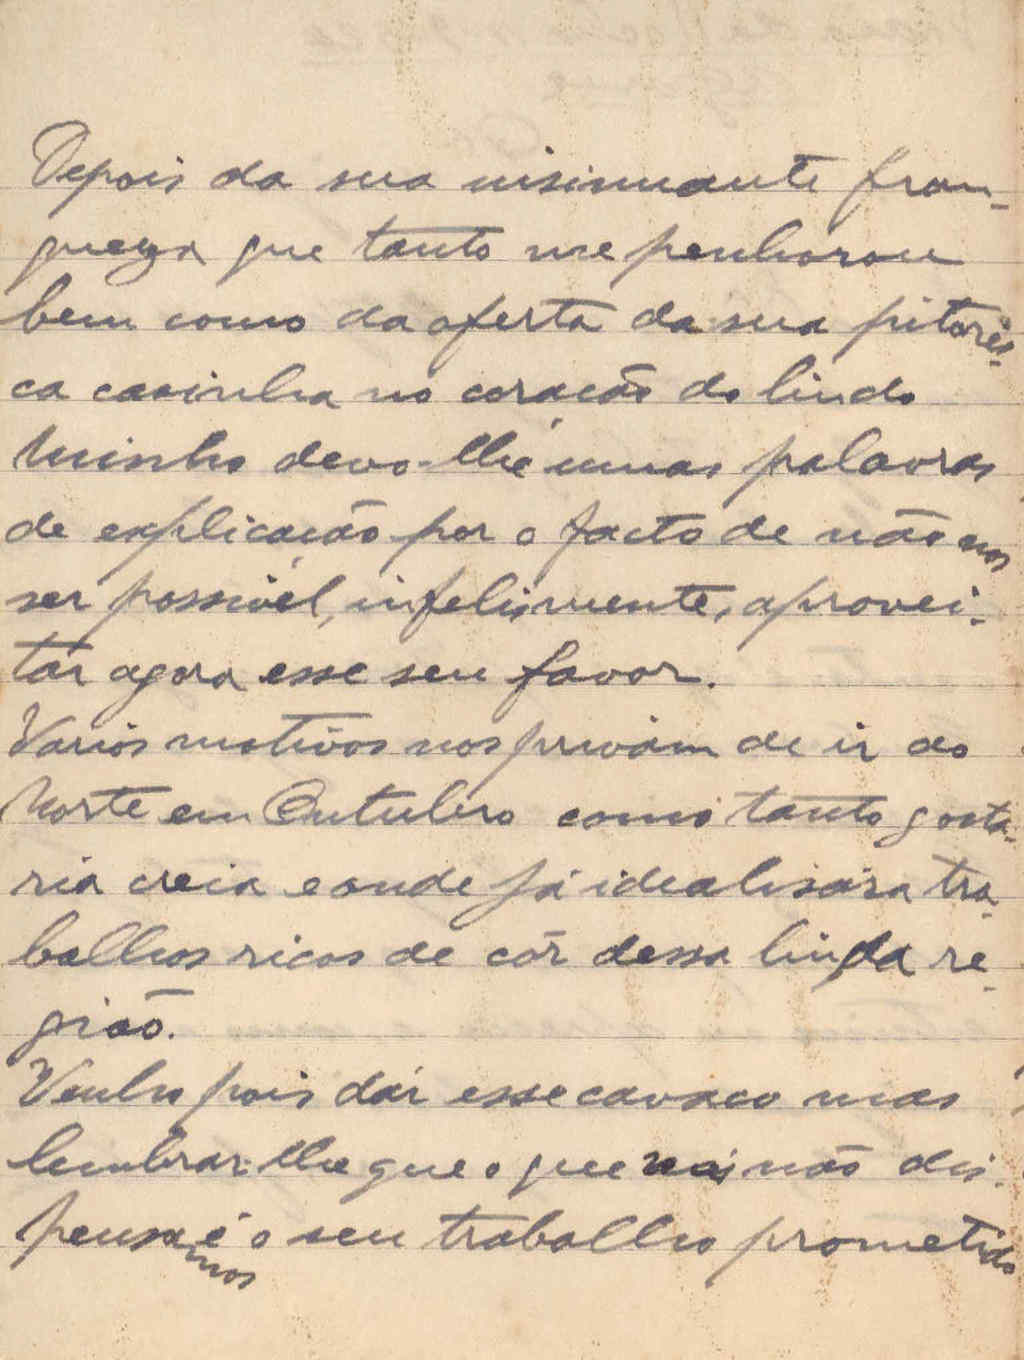 Depois da sua insinuante fran-
queza que tanto me penhorou
bem como da oferta da sua pitorês-
ca casinha no coração do lindo
Minho devo-lhe umas palavras
de explicação por o facto de não nos
ser possivel, infelismente, aprovei-
tar agora esse seu favor.
Varios motivos nos privam de ir ao
Norte em Outubro como tanto gosta-
ria creia e onde já idealisára tra-
balhos ricos de côr dessa linda re-
gião.
Venho pois dár esse cavaco mas
lembrar-lhe que o que nós não dis-
pensamos é o seu trabalho prometido